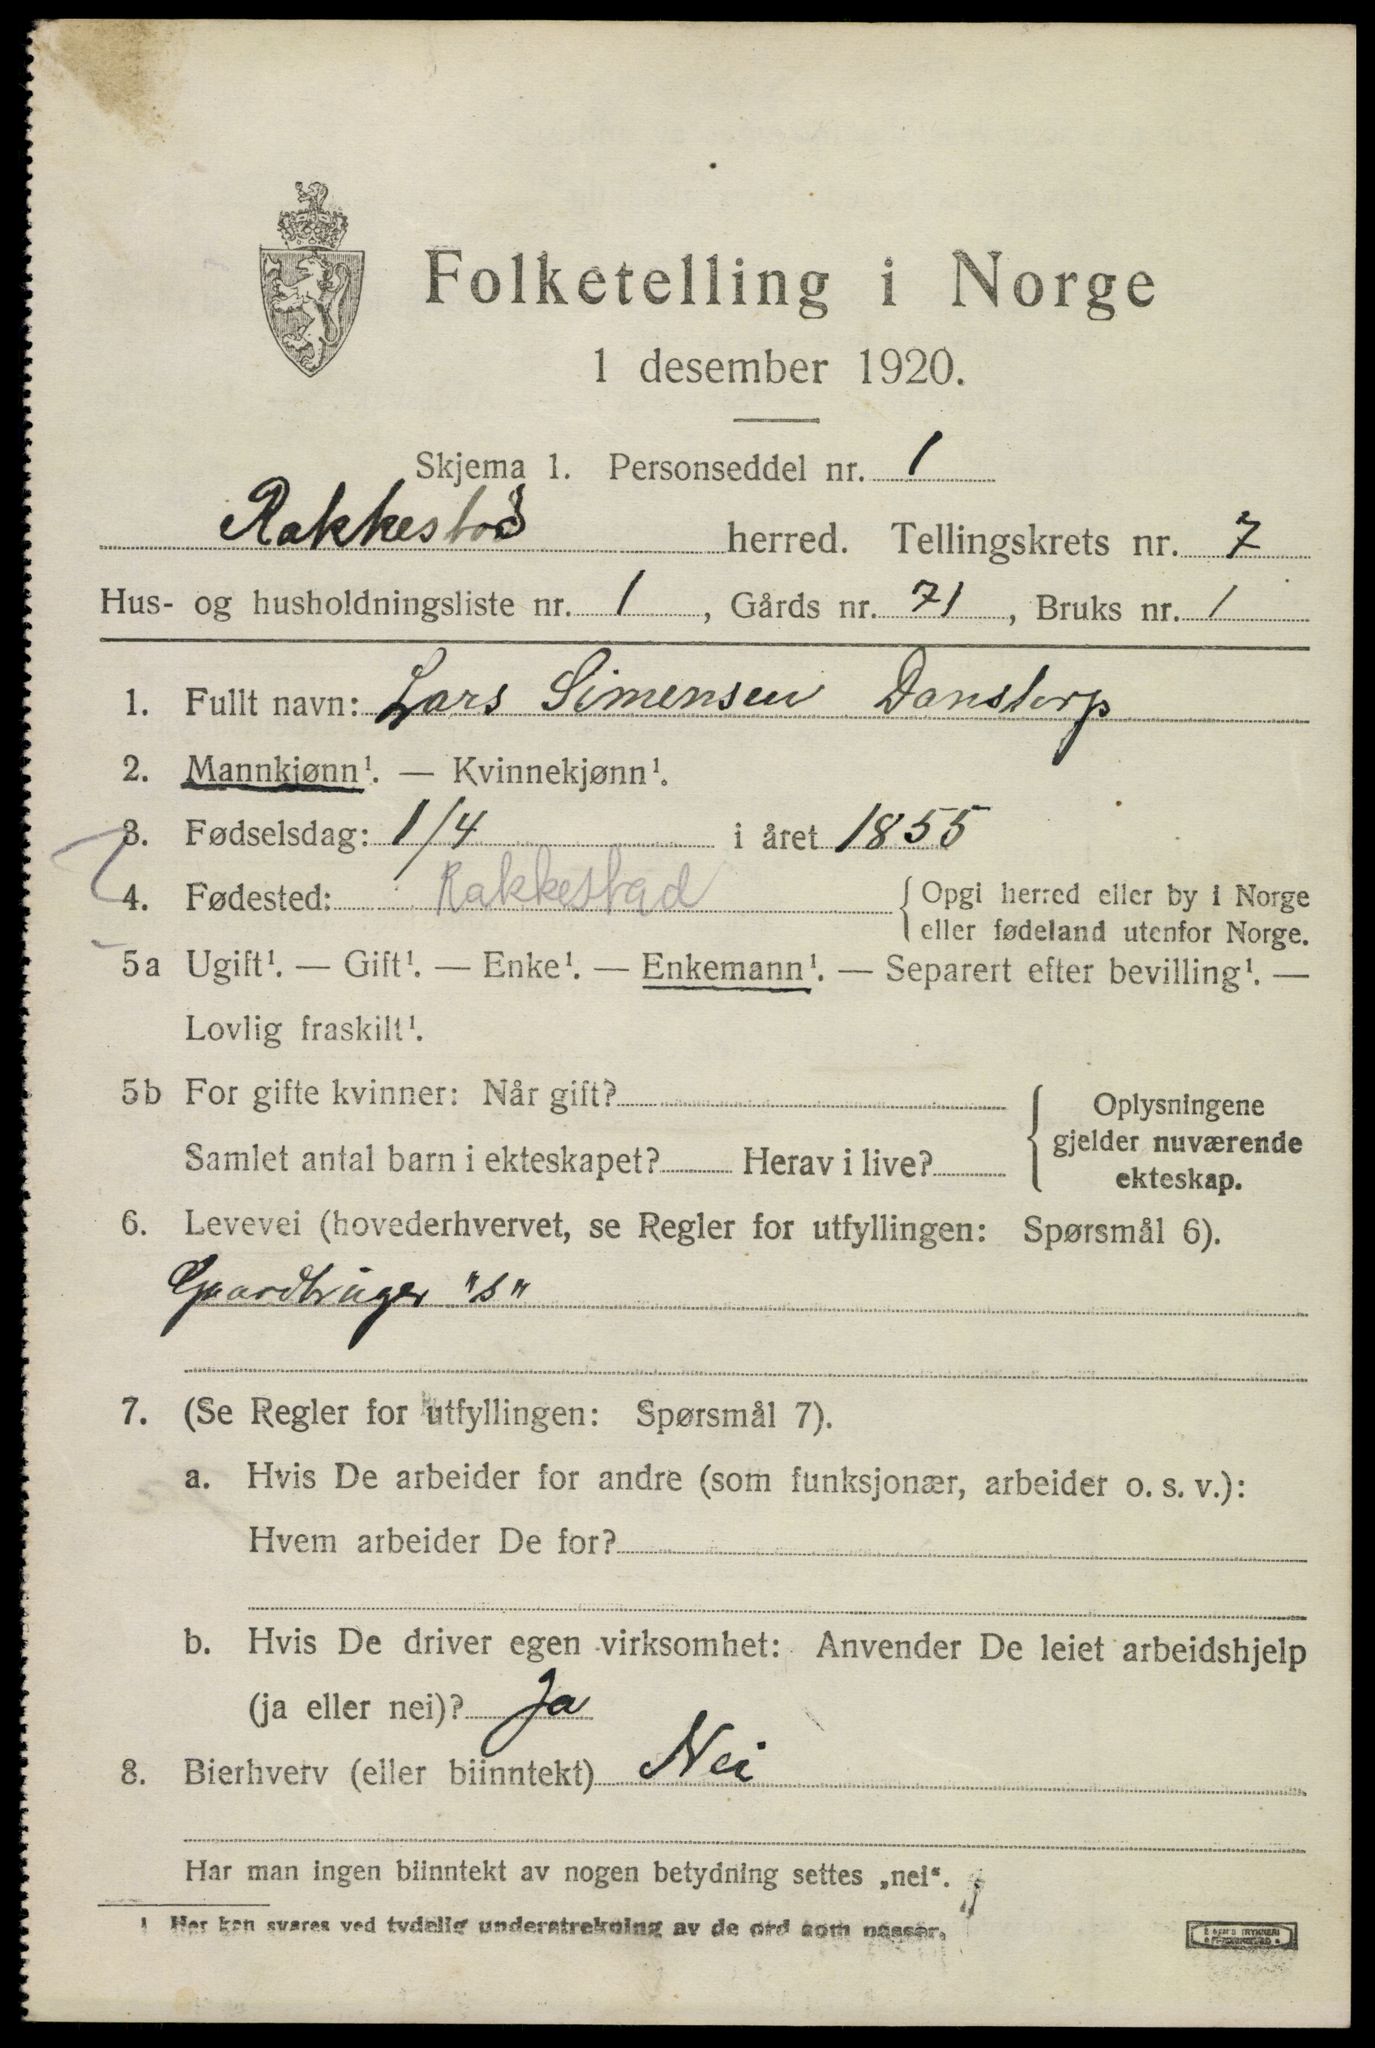 Folketelling i Norge
1 desember 1920.
Skjema 1. Personseddel nr. 1
Rakkestad herred. Tellingskrets nr. 7
Hus- og husholdningsliste nr. 1, Gårds nr. 71, Bruks nr. 1
1. Fullt navn: Lars Simensen Danstorp
2. Mannkjønn¹. — Kvinnekjønn¹.
3. Fødselsdag: 1/4 i året 1855
4. Fødested: Rakkestad { Opgi herred eller by i Norge
eller fødeland utenfor Norge.
5a Ugift¹. — Gift¹. — Enke¹. — Enkemann¹. — Separert efter bevilling¹. —
Lovlig fraskilt¹.
5b For gifte kvinner: Når gift?
Samlet antal barn i ekteskapet? Herav i live?
{ Oplysningene
gjelder nuværende
ekteskap.
6. Levevei (hovederhvervet, se Regler for utfyllingen: Spørsmål 6).
Gaardbruger "s"
7. (Se Regler for utfyllingen: Spørsmål 7).
a. Hvis De arbeider for andre (som funksjonær, arbeider o. s. v.):
Hvem arbeider De for?
b. Hvis De driver egen virksomhet: Anvender De leiet arbeidshjelp
(ja eller nei)? Ja
8. Bierhverv (eller biinntekt) Nei
Har man ingen biinntekt av nogen betydning settes „nei“.
1 Her kan svares ved tydelig understrekning av de ord som passer.